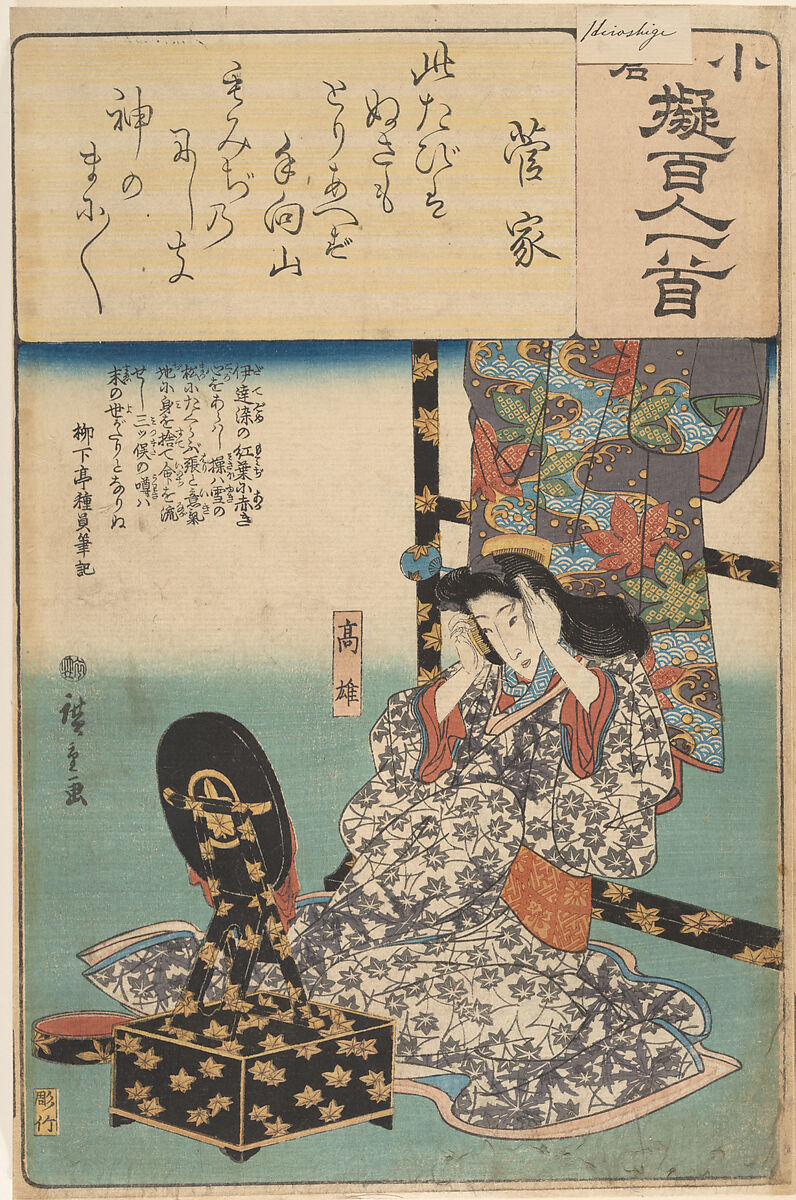 Hiroshige
小倉
擬百人一首
菅家
此たびは
ぬさも
とりあへず
手向山
もみぢ乃
にしき
神の
まに〱
伊達染の紅葉に赤き
心をあらはし操ハ雪の
松にたくらぶ張と意氣
地に身を捨て命を流
せし三ッ俣の噂ハ
末の世がたりとなりぬ
柳下亭種員筆記
高雄
廣重画
彫竹